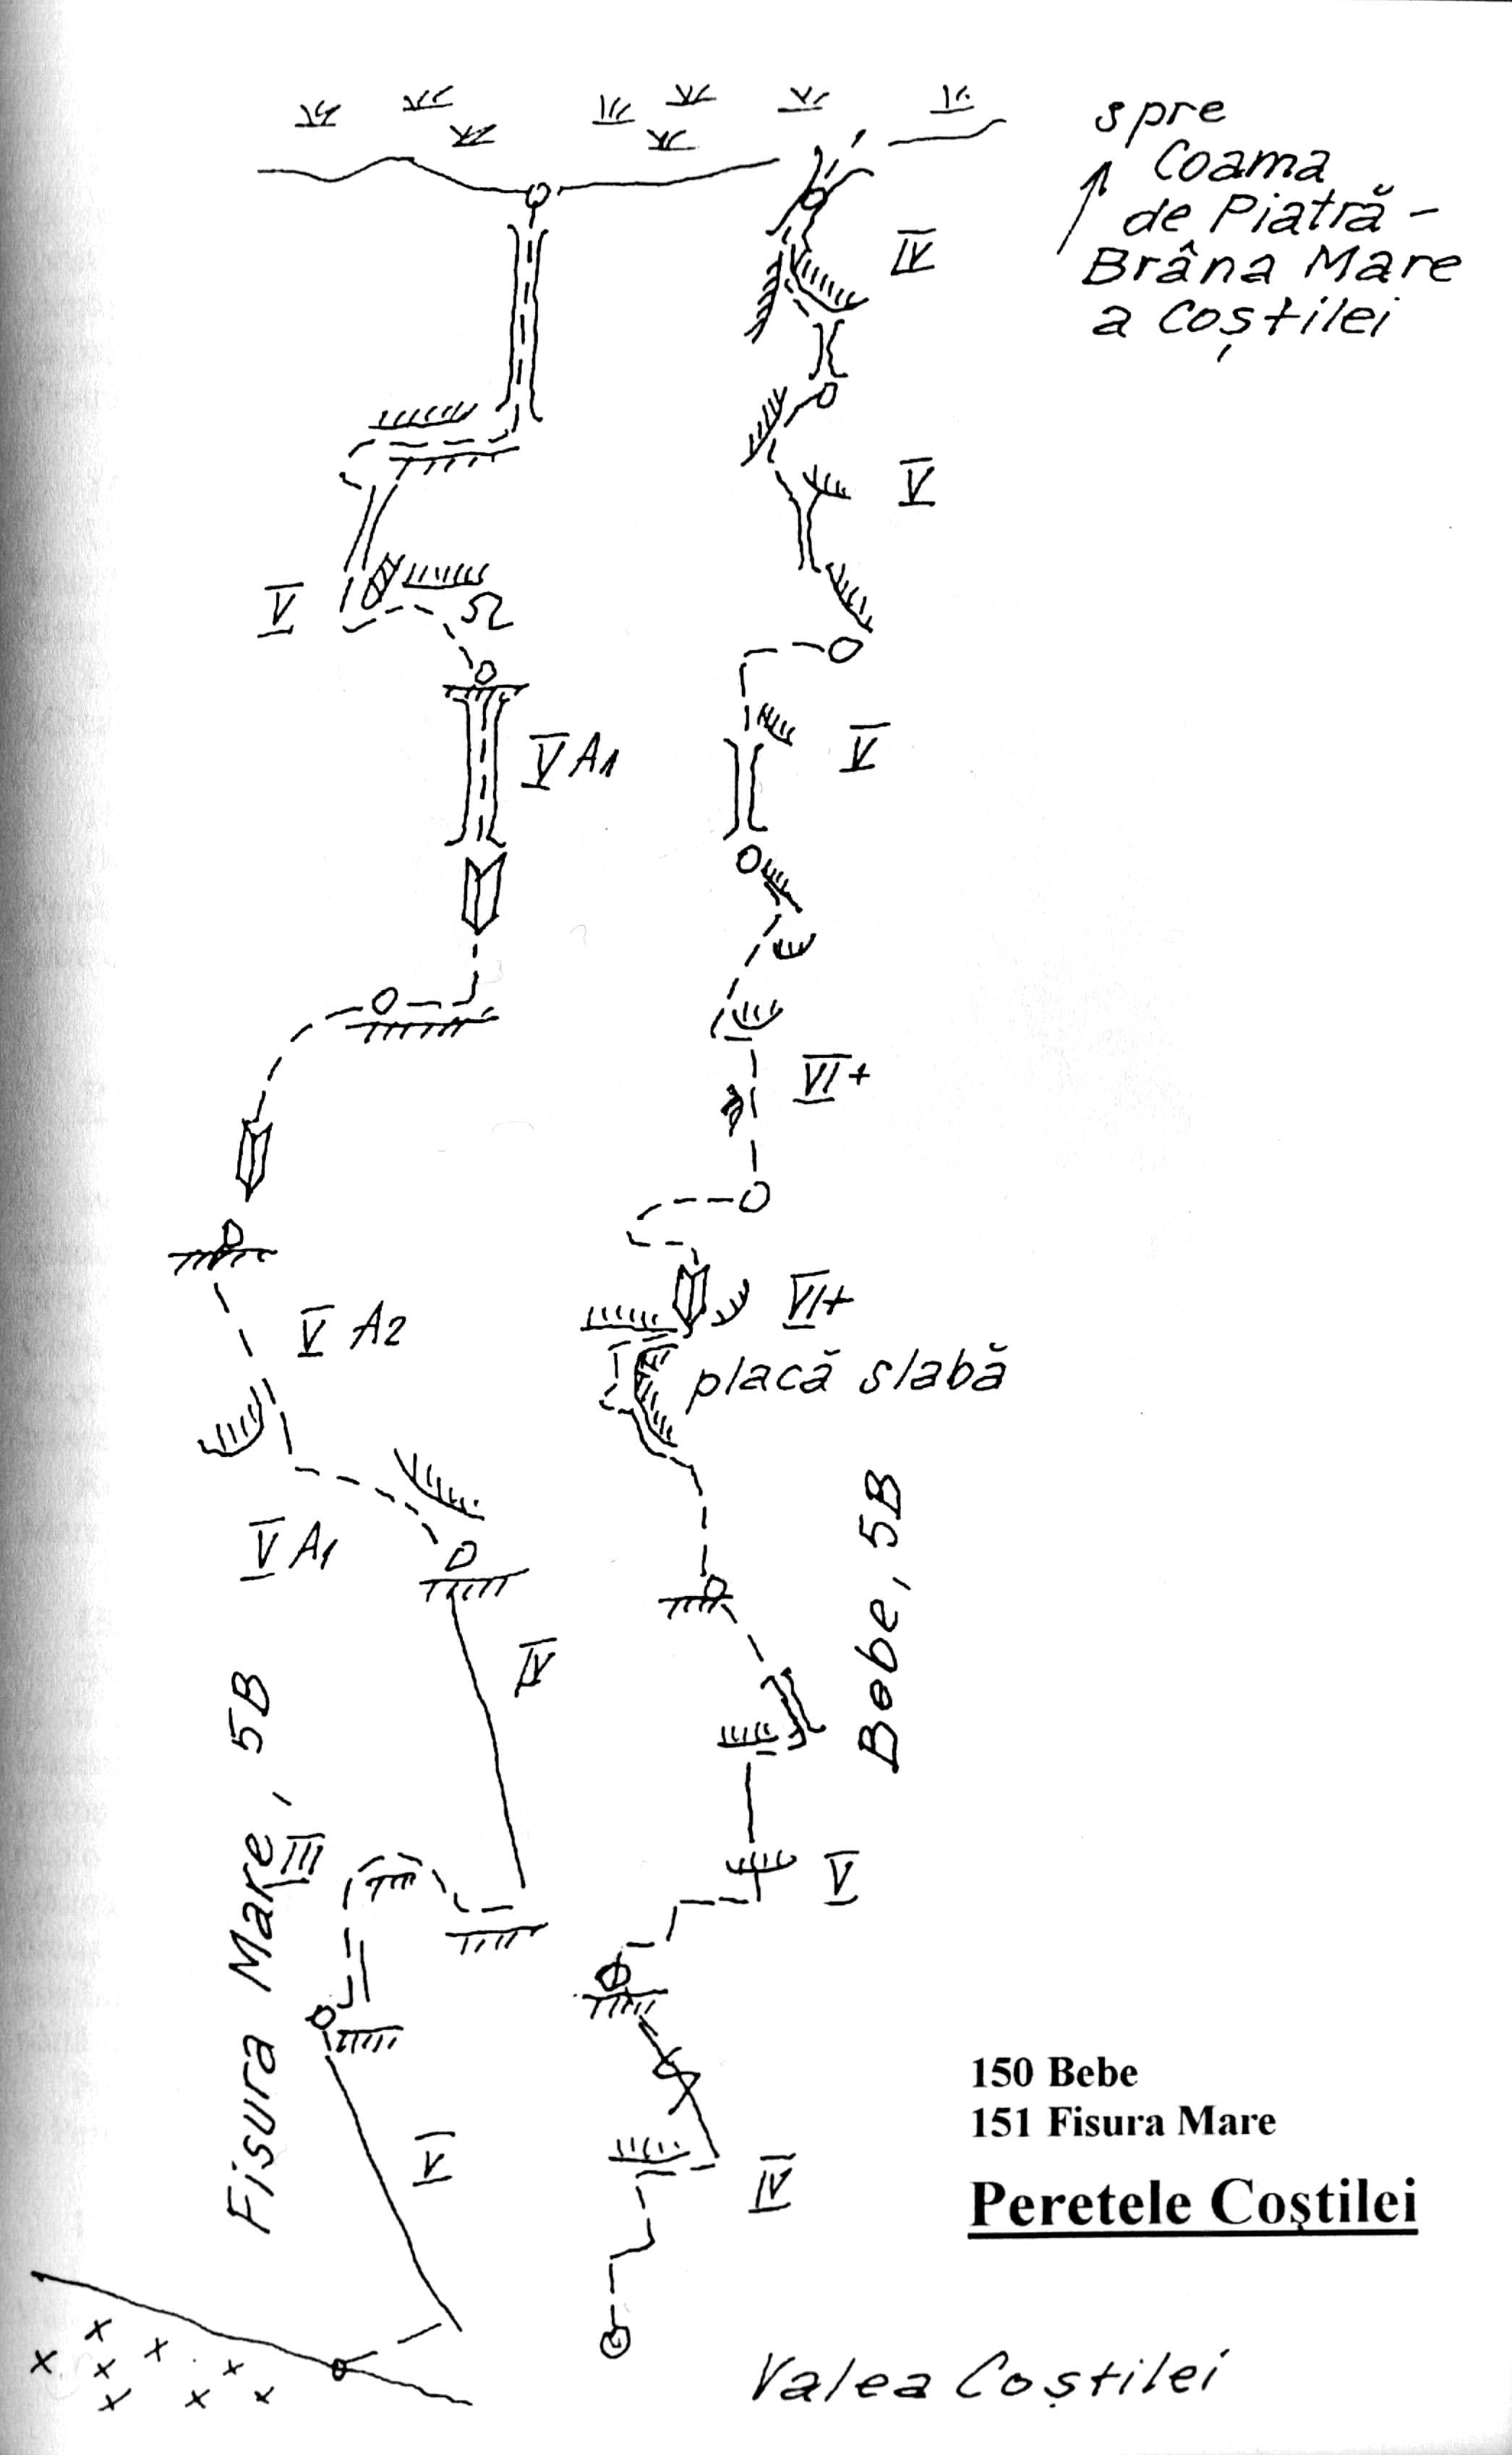 spre
Coama
de Piatră -
Brâna Mare
a Coștilei
IV
V
V
V
V A1
VI+
VI+
V A2
placă slabă
V A1
Bebe, 5B
IV
Fisura Mare, 5B
III
V
V
IV
150 Bebe
151 Fisura Mare
Peretele Coştilei
Valea Coștilei